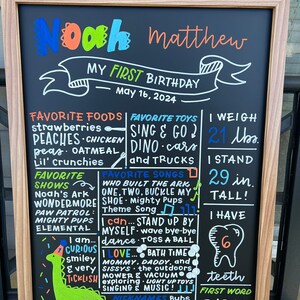 Noah Matthew
MY FIRST BIRTHDAY
May 16, 2024
FAVORITE FOODS
strawberries
PEACHES · CHICKEN
peas · OATMEAL
Lil' crunchies
FAVORITE TOYS
SING & GO
DINO · cars
and TRUCKS
I WEIGH
21 lbs.
I STAND
29 in
TALL!
FAVORITE
SHOWS
Noah's Ark
WONDERMORE
PAW PATROL:
MIGHTY PUPS
ELEMENTAL
FAVORITE SONGS
WHO BUILT THE ARK
ONE, TWO, BUCKLE MY
SHOE · Mighty Pups
Theme Song
I can... STAND UP BY
MYSELF · wave bye-bye
dance · TOSS A BALL
I HAVE
6
teeth
I am...
CURIOUS
smiley
& very
TICKLISH
I LOVE... BATH TIME
MOMMY, DADDY, and
SISSYS · the outdoors
MOWER & VACUUM
exploring · LIGHT UP TOYS
SINGING & MUSIC!
FIRST WORD
NICKNAMES Bubs